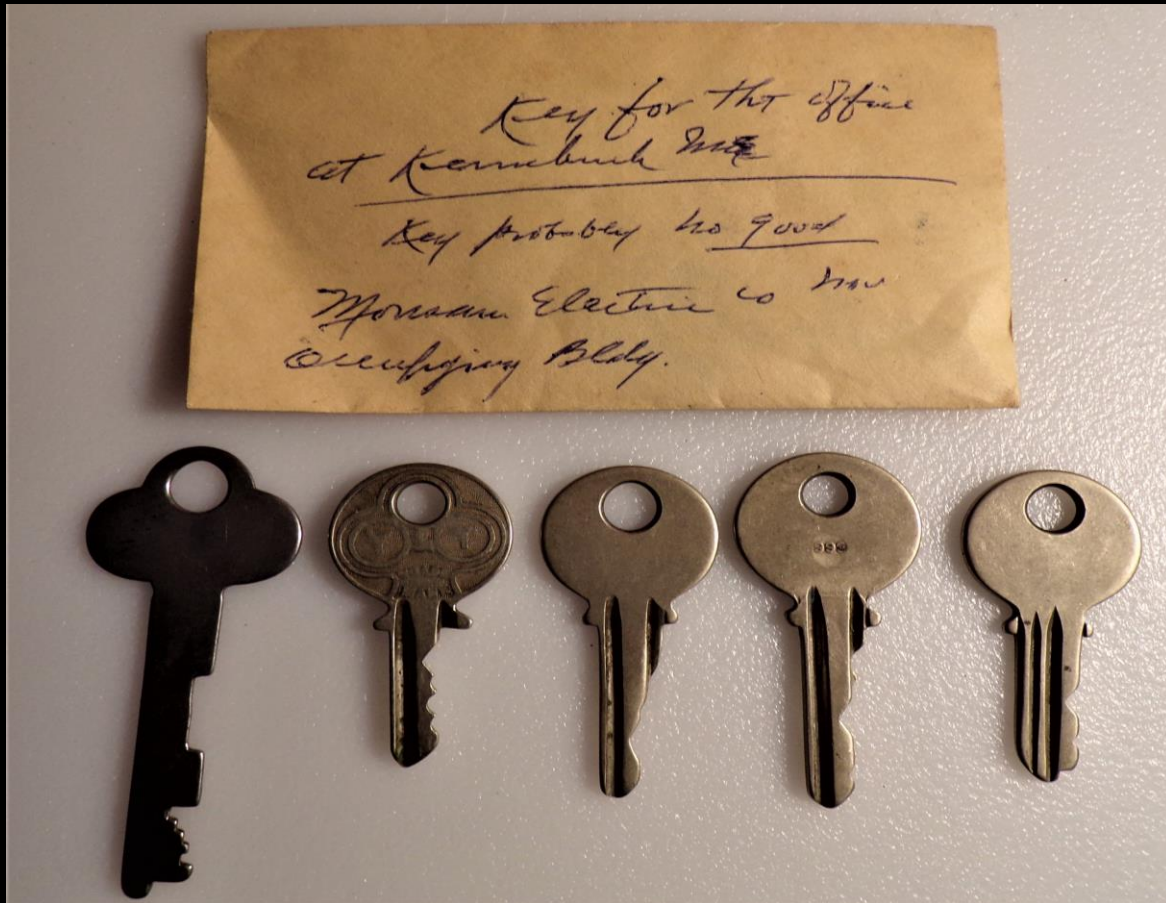 Key for tht office
at Kennebunk Me
Key probably no good
Mousam Electric is now
Occupying Bldg.